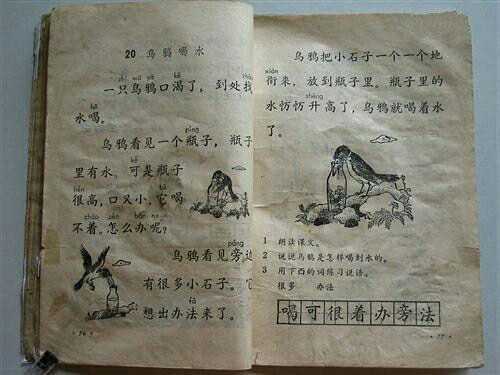 20 乌鸦喝水
zhī wū yā kě
一只乌鸦口渴了，到处找
hē
水喝。
píng
乌鸦看见一个瓶子，瓶子
kě
里有水。可是瓶子
hěn tā
很高，口又小，它喝
zháo zěn bàn ne
不着，怎么办呢？
páng
乌鸦看见旁边
有很多小石子。
fǎ
想出办法来了。
·76·
乌鸦把小石子一个一个地
xián
衔来，放到瓶子里。瓶子里的
shēng
水升高了，乌鸦就喝着水
了。
1 朗读课文。
2 说说乌鸦是怎样喝到水的。
3 用下的词练习说话。
很多 办法
喝可很着办旁法
·77·